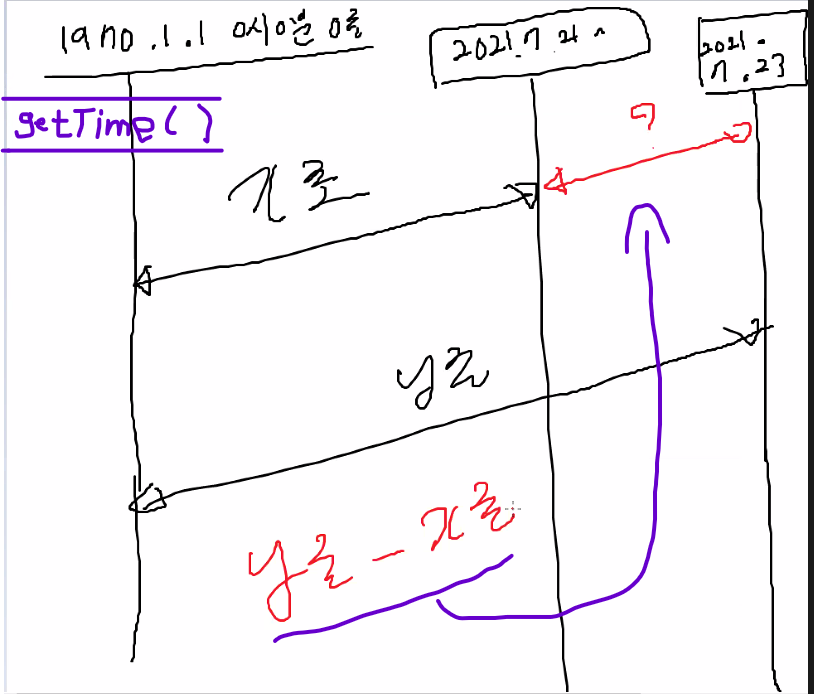 1970.1.1 0시0분 0초
2021.7
2021.
7.23
getTime()
x초
y초
y초 - x초